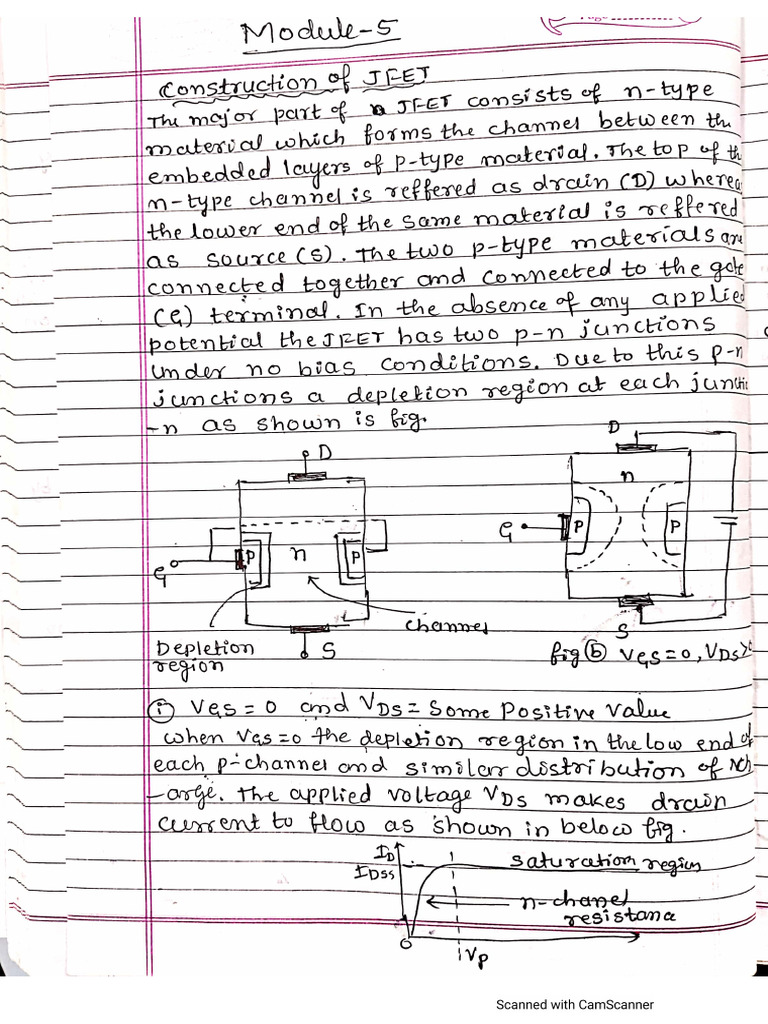 Module-5
Page
Construction of JFET
The major part of JFET consists of n-type
material which forms the channel between the
embedded layers of p-type material. The top of th
n-type channel is reffered as drain (D) wherea
the lower end of the same material is reffered
as source (S). The two p-type materials are
connected together and connected to the gate
(G) terminal. In the absence of any applied
potential the JFET has two p-n junctions
under no bias conditions. Due to this p-n
junctions a depletion region at each junctio
-n as shown is fig.
D
D
n
G
P
P
P
n
P
G
S
channel
Depletion
region
S
fig (b) VGS=0, VDS>0
(i) VGS = 0 and VDS = Some Positive Value
when VGS=0 the depletion region in the low end of
each p-channel and similar distribution of
-arge. The applied voltage VDS makes drain
current to flow as shown in below fig.
ID
IDSS
saturation region
n-chanel
resistana
0
VP
Scanned with CamScanner